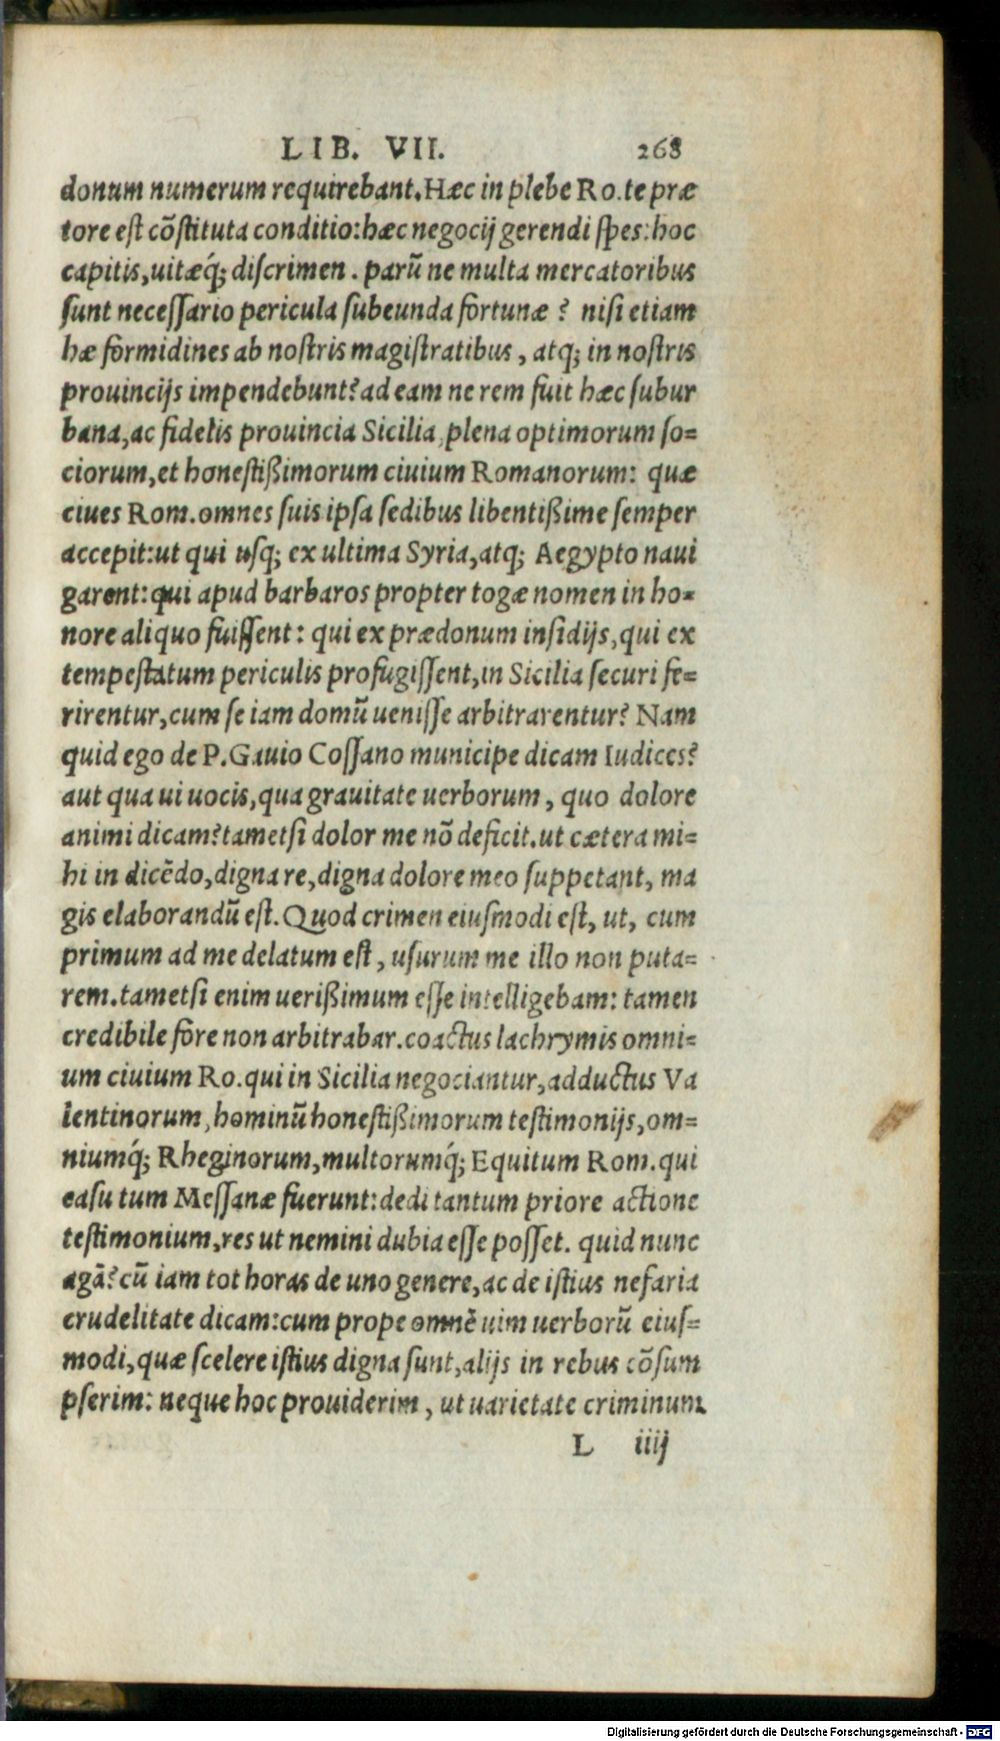 LIB. VII. 268
donum numerum requirebant. Hæc in plebe Ro. te præ
tore est cõstituta conditio: hæc negocij gerendi spes: hoc
capitis, uitæq́; discrimen. parũ ne multa mercatoribus
sunt necessario pericula subeunda fortunæ? nisi etiam
hæ formidines ab nostris magistratibus, atq; in nostris
prouincijs impendebunt? ad eam ne rem fuit hæc subur
bana, ac fidelis prouincia Sicilia, plena optimorum so=
ciorum, et honestißimorum ciuium Romanorum: quæ
ciues Rom. omnes suis ipsa sedibus libentißime semper
accepit: ut qui usq; ex ultima Syria, atq; Aegypto naui
garent: qui apud barbaros propter togæ nomen in ho=
nore aliquo fuissent: qui ex prædonum insidijs, qui ex
tempestatum periculis profugissent, in Sicilia securi fe=
rirentur, cum se iam domũ uenisse arbitrarentur? Nam
quid ego de P. Gauio Cossano municipe dicam Iudices?
aut qua ui uocis, qua grauitate uerborum, quo dolore
animi dicam? tametsi dolor me nõ deficit. ut cætera mi=
hi in dicẽdo, digna re, digna dolore meo suppetant, ma
gis elaborandũ est. Quod crimen eiusmodi est, ut, cum
primum ad me delatum est, usurum me illo non puta=
rem. tametsi enim uerißimum esse intelligebam: tamen
credibile fore non arbitrabar. coactus lachrymis omni=
um ciuium Ro. qui in Sicilia negociantur, adductus Va
lentinorum, hominũ honestißimorum testimonijs, om=
niumq́; Rheginorum, multorumq́; Equitum Rom. qui
casu tum Messanæ fuerunt: dedi tantum priore actione
testimonium, res ut nemini dubia esse posset. quid nunc
agã? cũ iam tot horas de uno genere, ac de istius nefaria
crudelitate dicam: cum prope omnẽ uim uerborũ eius=
modi, quæ scelere istius digna sunt, alijs in rebus cõsum
pserim: neque hoc prouiderim, ut uarietate criminum
L iiij
Digitalisierung gefördert durch die Deutsche Forschungsgemeinschaft - DFG